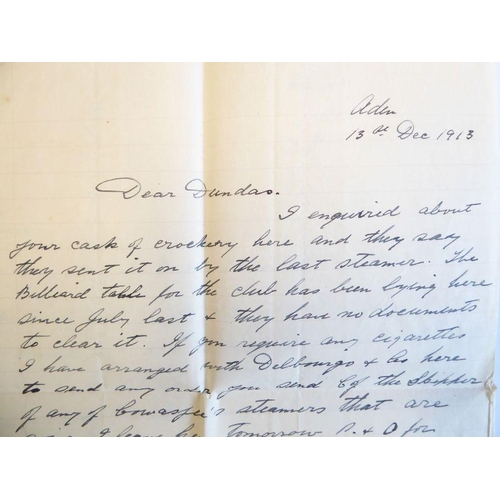 Aden
13th Dec 1913
Dear Dundas.
I enquired about
your cask of crockery here and they say
they sent it on by the last steamer. The
Billiard table for the club has been lying here
since July last & they had no documents
to clear it. If you require any cigarettes
I have arranged with Delbourgo & Co here
to send any order you send c/o the Skipper
of any of Cowasjee's steamers that are
I leave here Tomorrow P. & O for